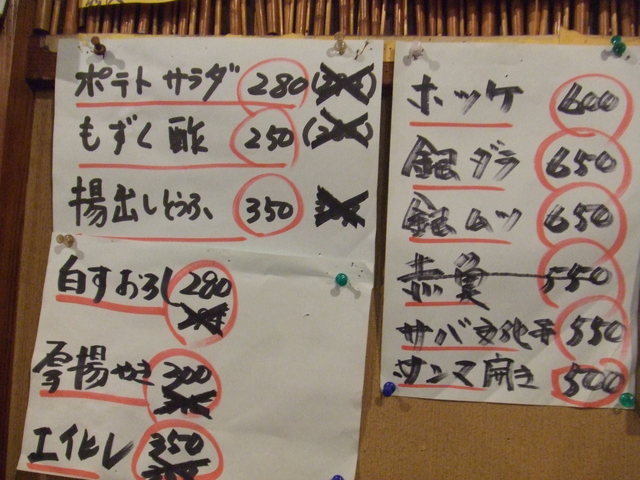 ポテトサラダ 280
もずく酢 250
揚出しとうふ 350
白すおろし 280
厚揚やき 300
エイヒレ 350
ホッケ 600
銀ダラ 650
銀ムツ 650
赤魚 550
サバ文化干 550
サンマ開き 500